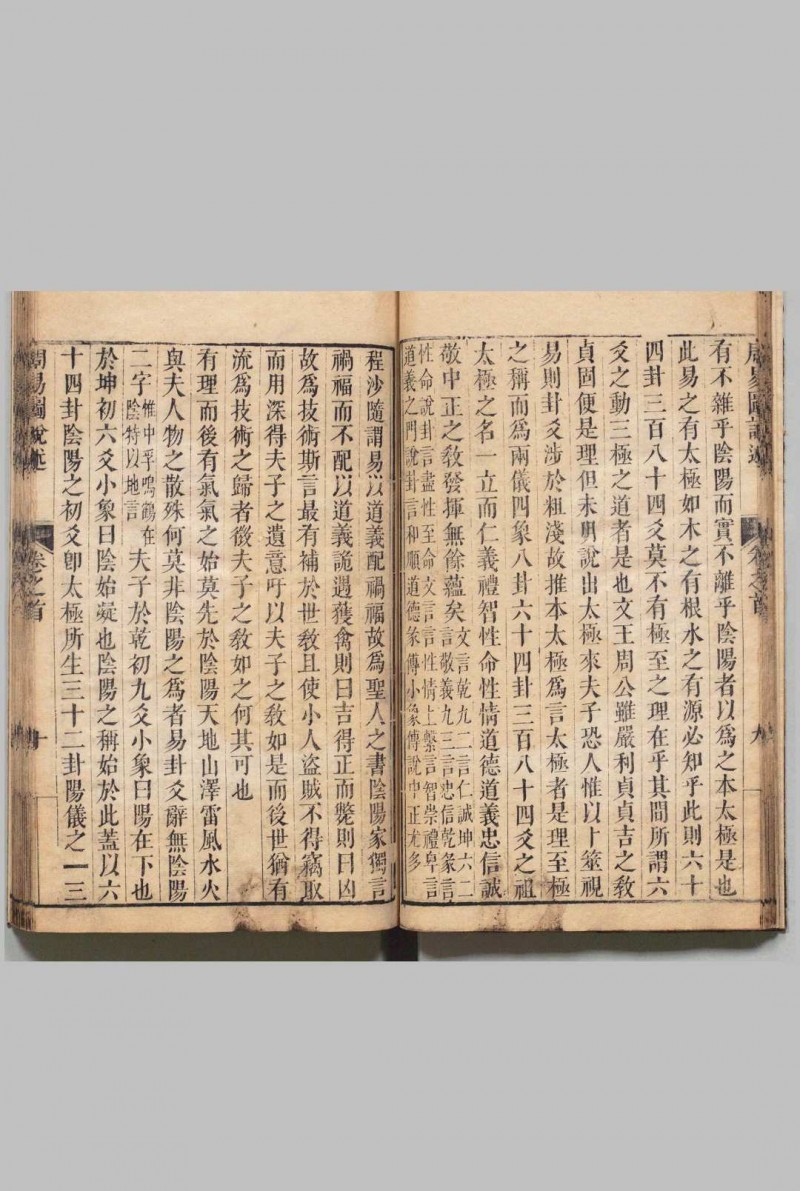 周易圖說述
卷之首
九
有不雜乎陰陽而實不離乎陰陽者以爲之本太極是也
此易之有太極如木之有根水之有源必知乎此則六十
四卦三百八十四爻莫不有極至之理在乎其間所謂六
爻之動三極之道者是也文王周公雖嚴利貞貞吉之敎
貞固便是理但未明說出太極來夫子恐人惟以卜筮視
易則卦爻涉於粗淺故推本太極爲言太極者是理至極
之稱而爲兩儀四象八卦六十四卦三百八十四爻之祖
太極之名一立而仁義禮智性命性情道德道義忠信誠
敬中正之敎發揮無餘蘊矣文言乾九二言仁誠坤六二言敬義九三言忠信乾彖言
性命說卦言盡性至命文言言性情上繫言智崇禮卑言
道義之門說卦言和順道德彖傳小象傳說中正尤多
程沙隨謂易以道義配禍福故爲聖人之書陰陽家獨言
禍福而不配以道義詭遇獲禽則曰吉得正而斃則曰凶
故爲技術斯言最有補於世敎且使小人盜賊不得竊取
而用深得夫子之遺意吁以夫子之敎如是而後世猶有
流爲技術之歸者微夫子之敎如之何其可也
有理而後有氣氣之始莫先於陰陽天地山澤雷風水火
與夫人物之散殊何莫非陰陽之爲者易卦爻辭無陰陽
二字惟中孚鳴鶴在陰特以地言夫子於乾初九爻小象曰陽在下也
於坤初六爻小象曰陰始凝也陰陽之稱始於此蓋以六
十四卦陰陽之初爻卽太極所生三十二卦陽儀之一三
周易圖說述
卷之首
十